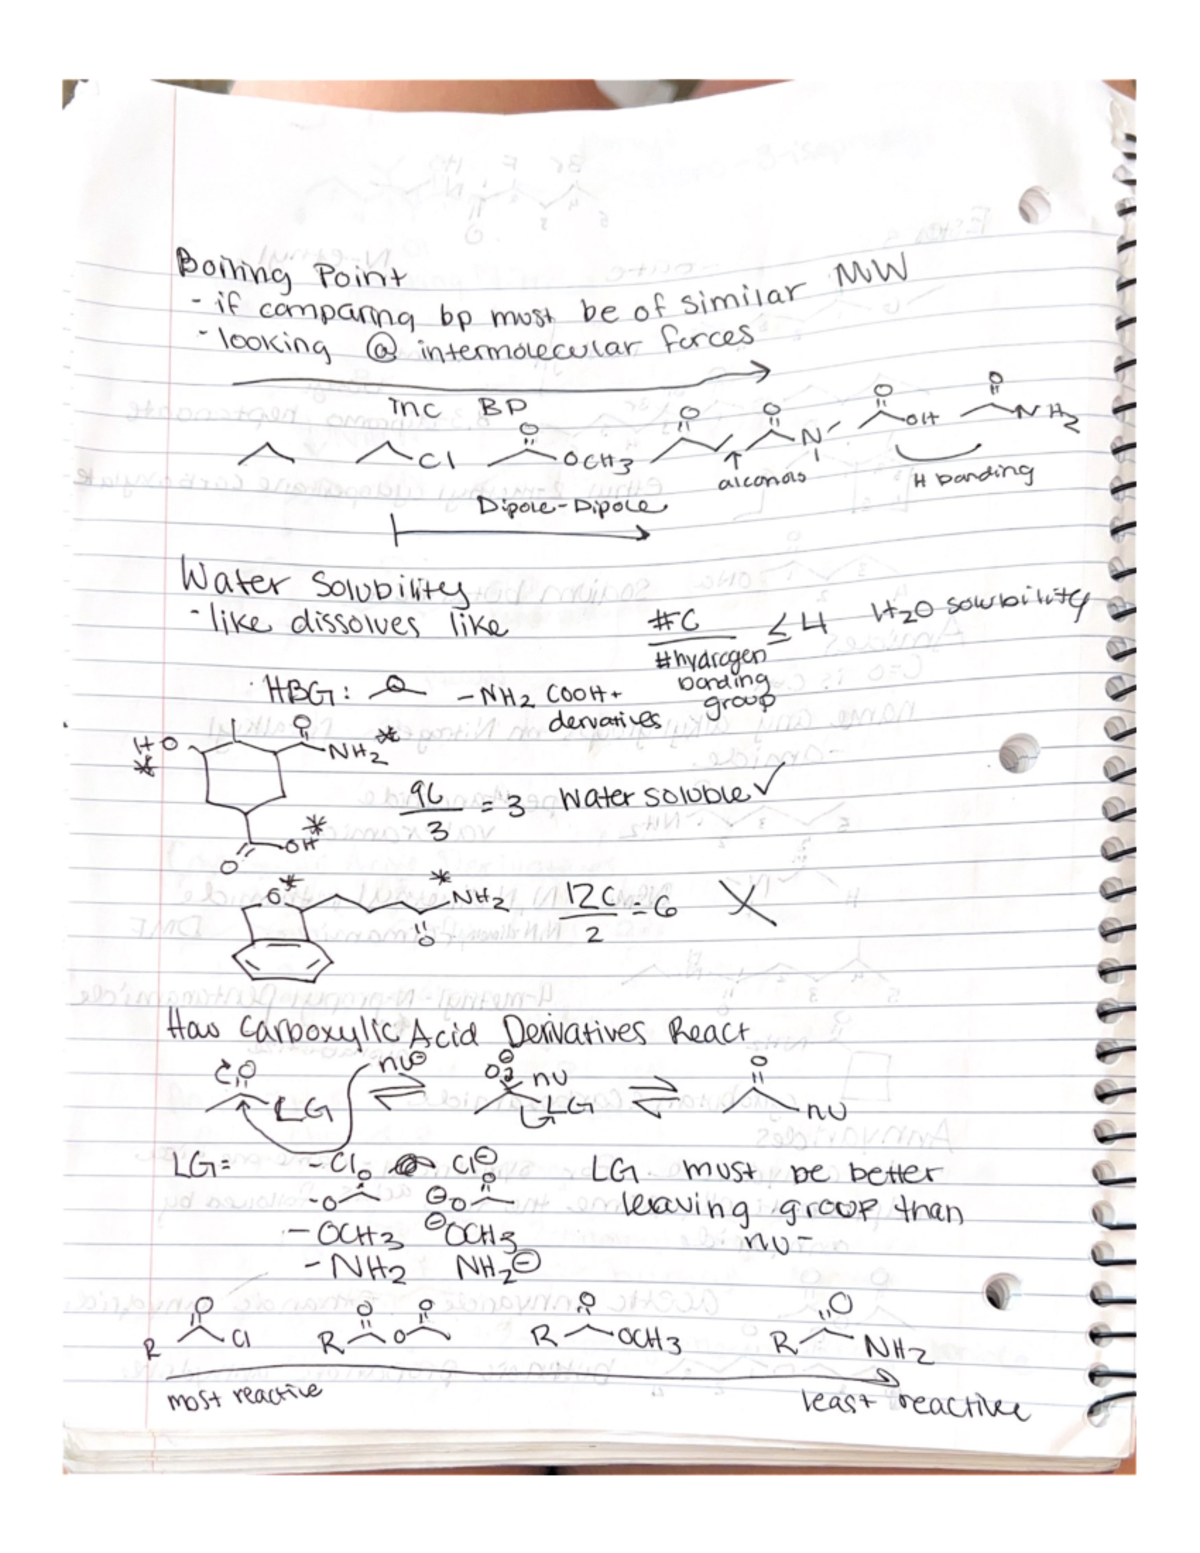 Boiling Point
- if comparing bp must be of similar MW
- looking @ intermolecular forces
inc BP
Cl
O
OCH3
O
O
N
O
OH
O
NH2
alcohols
H bonding
Dipole-Dipole
Water Solubility
- like dissolves like
#C / #hydrogen bonding group ≤ 4 H2O solubility
HBG: O -NH2 COOH + derivatives
HO * O NH2 *
9C / 3 = 3 Water soluble ✓
O OH *
O * NH2 * O
12C / 2 = 6 X
How Carboxylic Acid Derivatives React
O LG nu⊖ ⇌ O⊖ nu LG ⇌ O nu
LG = -Cl Cl⊖
-O O ⊖O O
-OCH3 ⊖OCH3
-NH2 NH2⊖
LG must be better
leaving group than
nu-
R O Cl
R O O O
R O OCH3
R O NH2
most reactive
least reactive